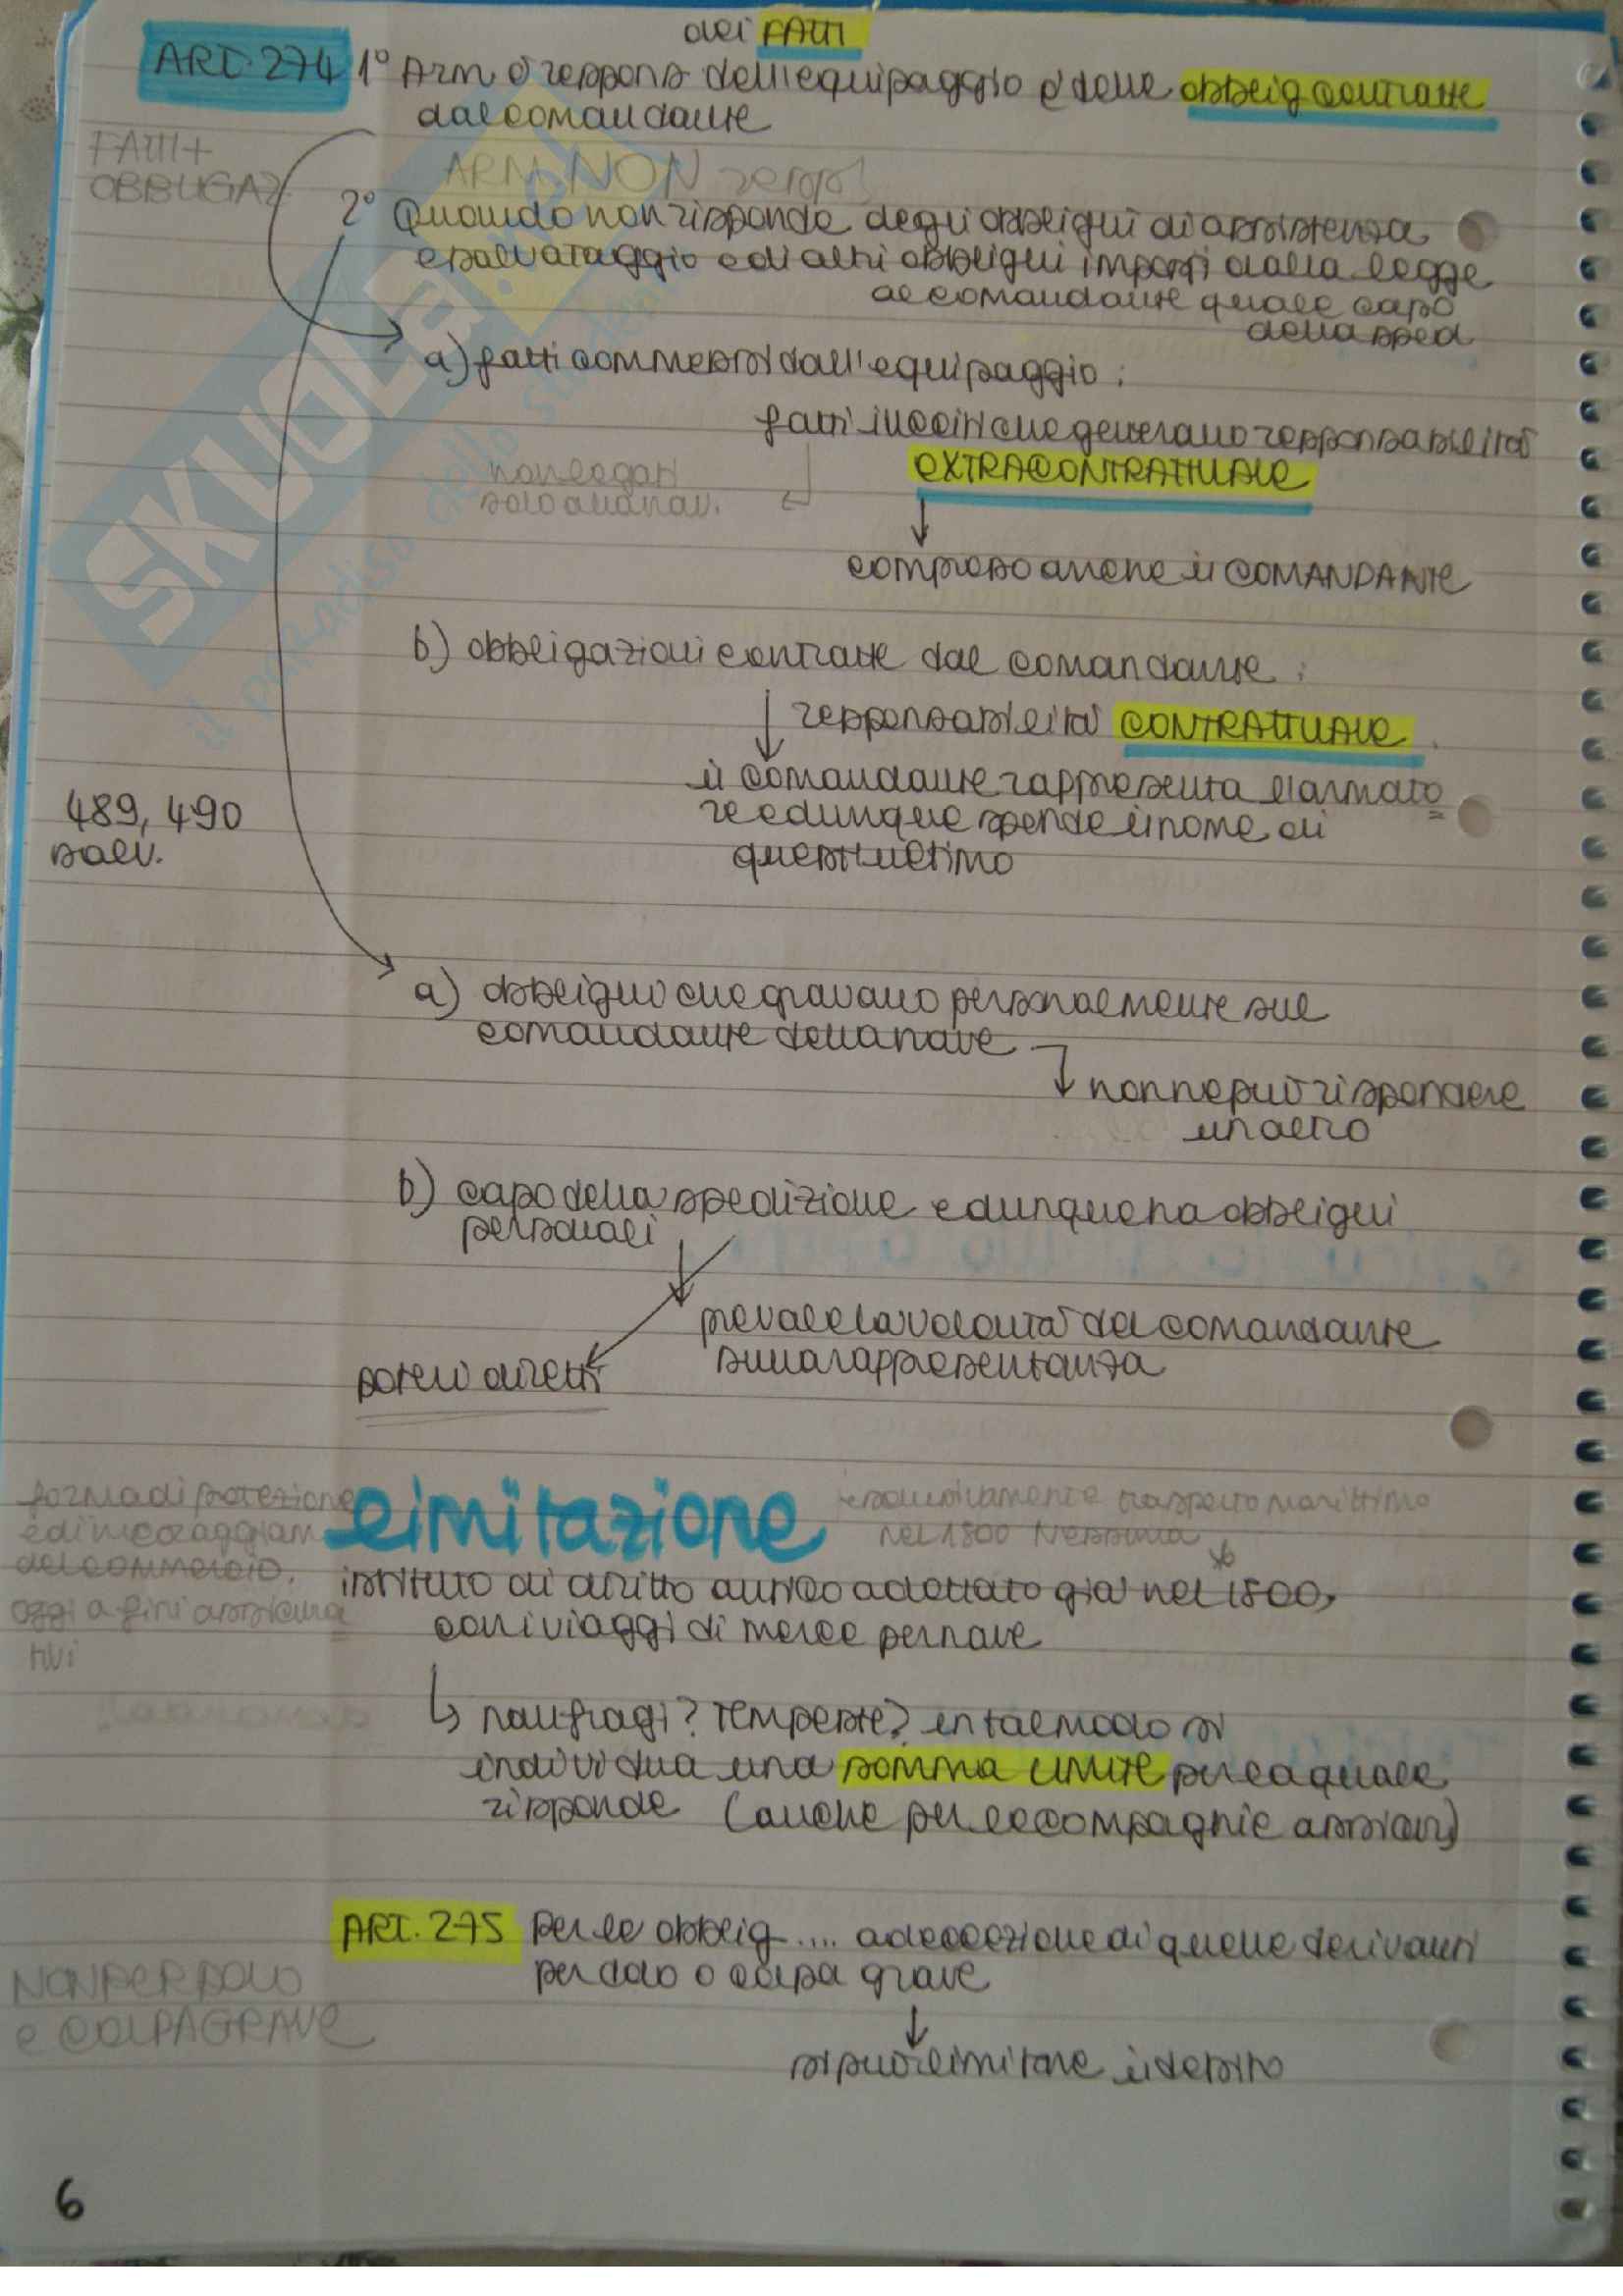 dei FATTI
ART. 274 1° Arm è respons dell'equipaggio e delle obblig contratte
dal comandante
FATTI +
OBBLIGAZ
ARM. NON respons
2° Quando non risponde degli obblighi di assistenza
e salvataggio e di altri obblighi imposti dalla legge
al comandante quale capo
della sped
a) fatti commessi dall'equipaggio:
fatti illeciti che generano responsabilità
EXTRACONTRATTUALE
non legati
solo alla nav.
compreso anche il COMANDANTE
b) obbligazioni contratte dal comandante:
responsabilità CONTRATTUALE
il comandante rappresenta l'armato
re e dunque spende il nome di
quest'ultimo
489, 490
salv.
a) obblighi che gravano personalmente sul
comandante della nave
non ne può rispondere
un altro
b) capo della spedizione e dunque ha obblighi
personali
prevale la volontà del comandante
sulla rappresentanza
poteri diretti
forma di protezione
e di incoraggiam
del commercio.
oggi a fini assicura
tivi
limitazione
esclusivamente trasporto marittimo
nel 1800 Nessuna
istituto di diritto antico adottato già nel 1800,
con i viaggi di merce per nave
naufragi? Tempeste? in tal modo si
individua una somma limite per la quale
risponde (anche per le compagnie assicur)
ART. 275 Per le obblig .... ad eccezione di quelle derivanti
per dolo o colpa grave
NON PER DOLO
e COLPA GRAVE
si può limitare il debito
6
SKUOLA
il paradiso dello studente